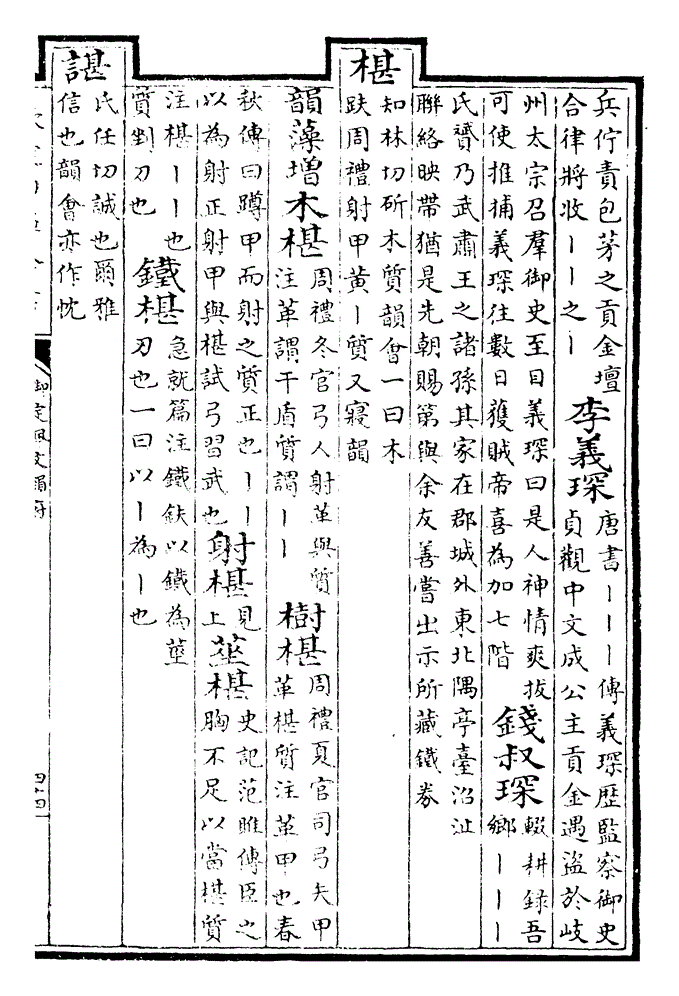 兵佇責包茅之貢金壇
合律將收丨丨之丨
李義琛
唐書丨丨丨傳義琛歷監察御史
貞觀中文成公主貢金遇盜於岐
州太宗召羣御史至目義琛曰是人神情爽拔
可使推捕義琛往數日獲賊帝喜為加七階
錢叔琛
輟耕録吾
鄉丨丨丨
氏賛乃武肅王之諸孫其家在郡城外東北隅亭臺沼沚
聯絡映帶猶是先朝賜第與余友善嘗出示所藏鐵劵
椹
知林切斫木質韻會一曰木
趺周禮射甲黃丨質又寢韻
韻藻增木椹
周禮冬官弓人射革與質
注革謂干盾質謂丨丨
樹椹
周禮夏官司弓矢甲
革椹質注革甲也春
秋傳曰蹲甲而射之質正也丨丨
以為射正射甲與椹試弓習武也
射椹
見
上
莝椹
史記范睢傳臣之
胸不足以當椹質
注椹丨丨也
質剉刀也
鐵椹
急就篇注鐵鈇以鐵為莖
刃也一曰以丨為丨也
諶
氏任切誠也爾雅
信也韻會亦作忱
御定佩文韻府
四十四